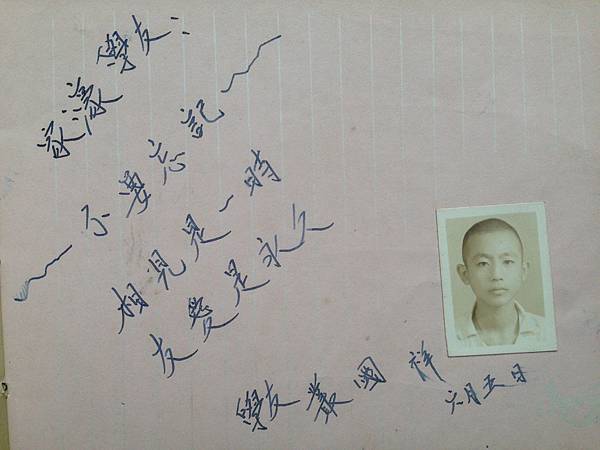 學友：
～不要忘記～
相見是一時
友愛是永久
學友 國祥
六月五日